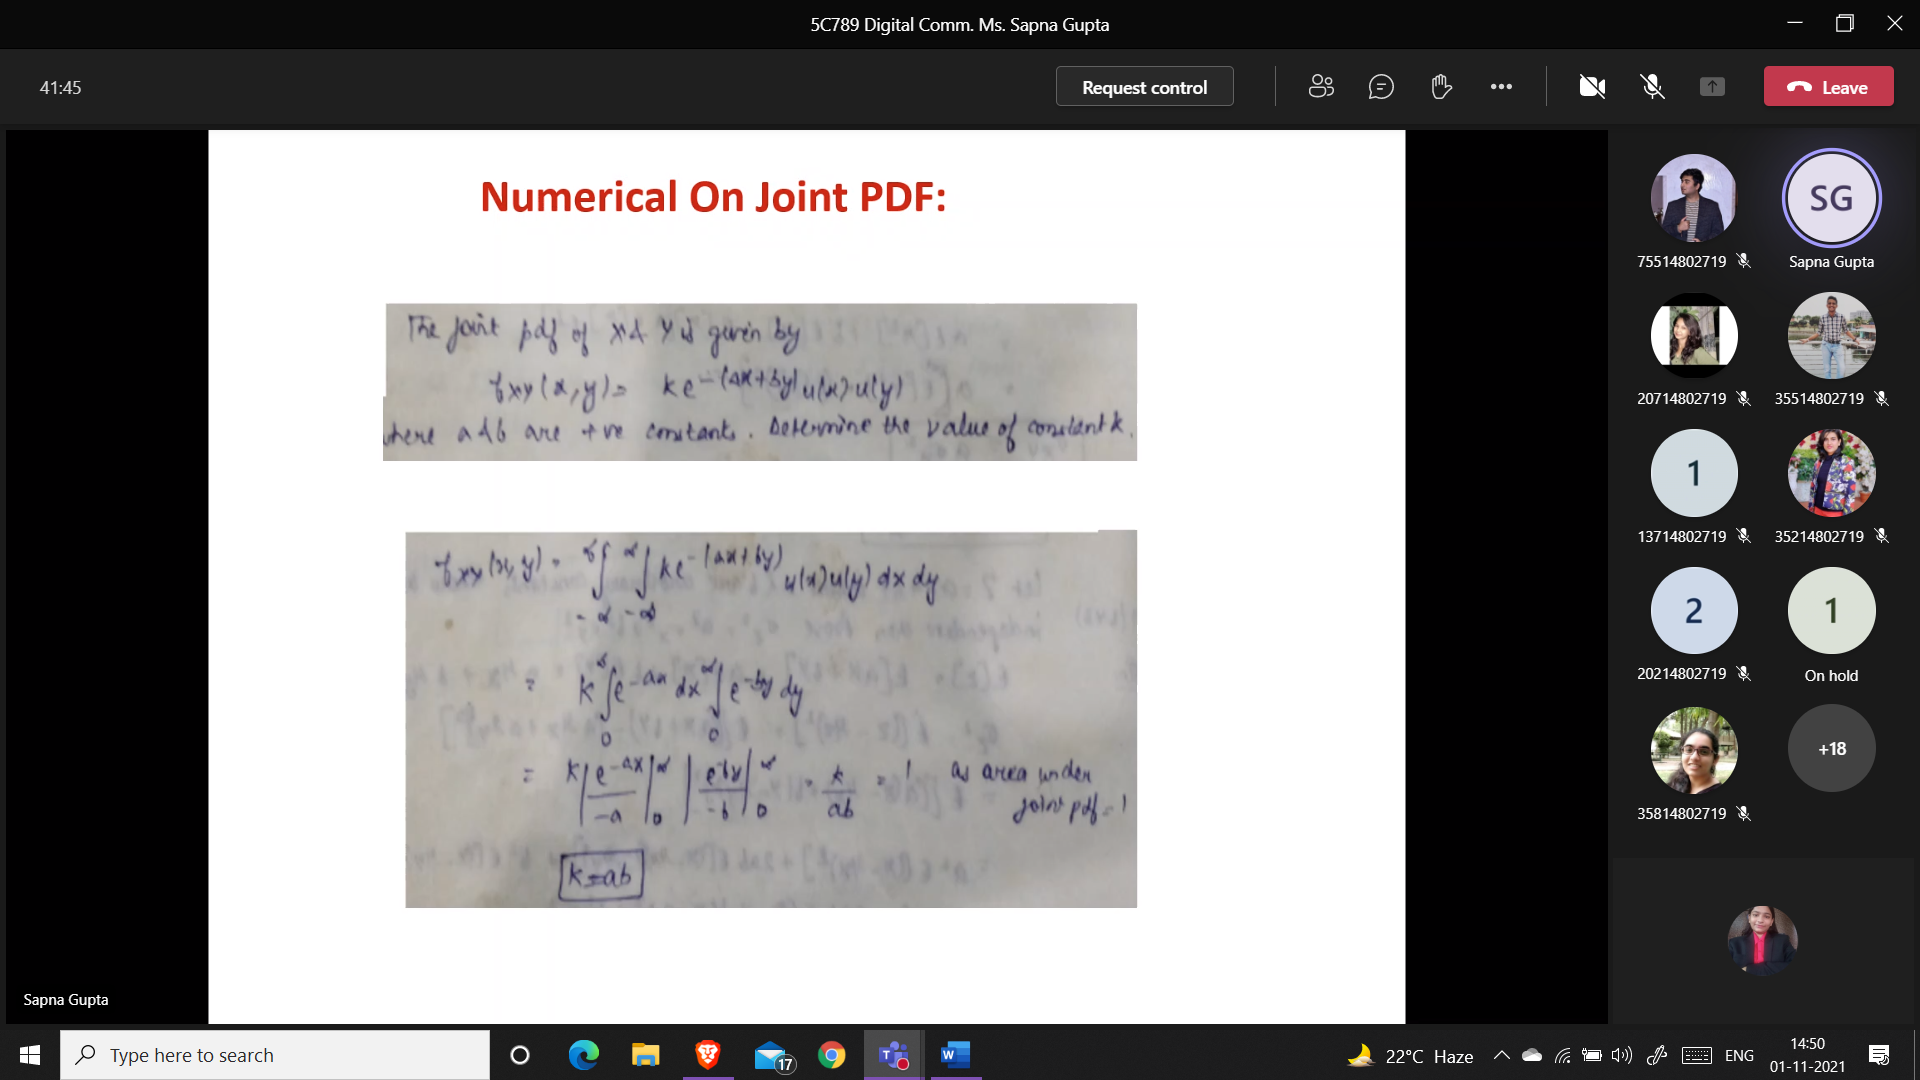 5C789 Digital Comm. Ms. Sapna Gupta
41:45
Request control
Leave
Numerical On Joint PDF:
The joint pdf of X & Y is given by
fXY(x,y) = ke-(ax+by) u(x) u(y)
where a & b are +ve constants. Determine the value of constant k.
fXY(x,y) = ∞∫-∞ ∞∫-∞ ke-(ax+by) u(x)u(y) dx dy
= k ∞∫0 e-ax dx ∞∫0 e-by dy
= k |e-ax/-a|∞0 |e-by/-b|∞0 = k/ab = 1 as area under
joint pdf = 1
k=ab
Sapna Gupta
75514802719
SG
Sapna Gupta
20714802719
35514802719
1
13714802719
35214802719
2
20214802719
1
On hold
35814802719
+18
Type here to search
17
22°C Haze
ENG
14:50
01-11-2021